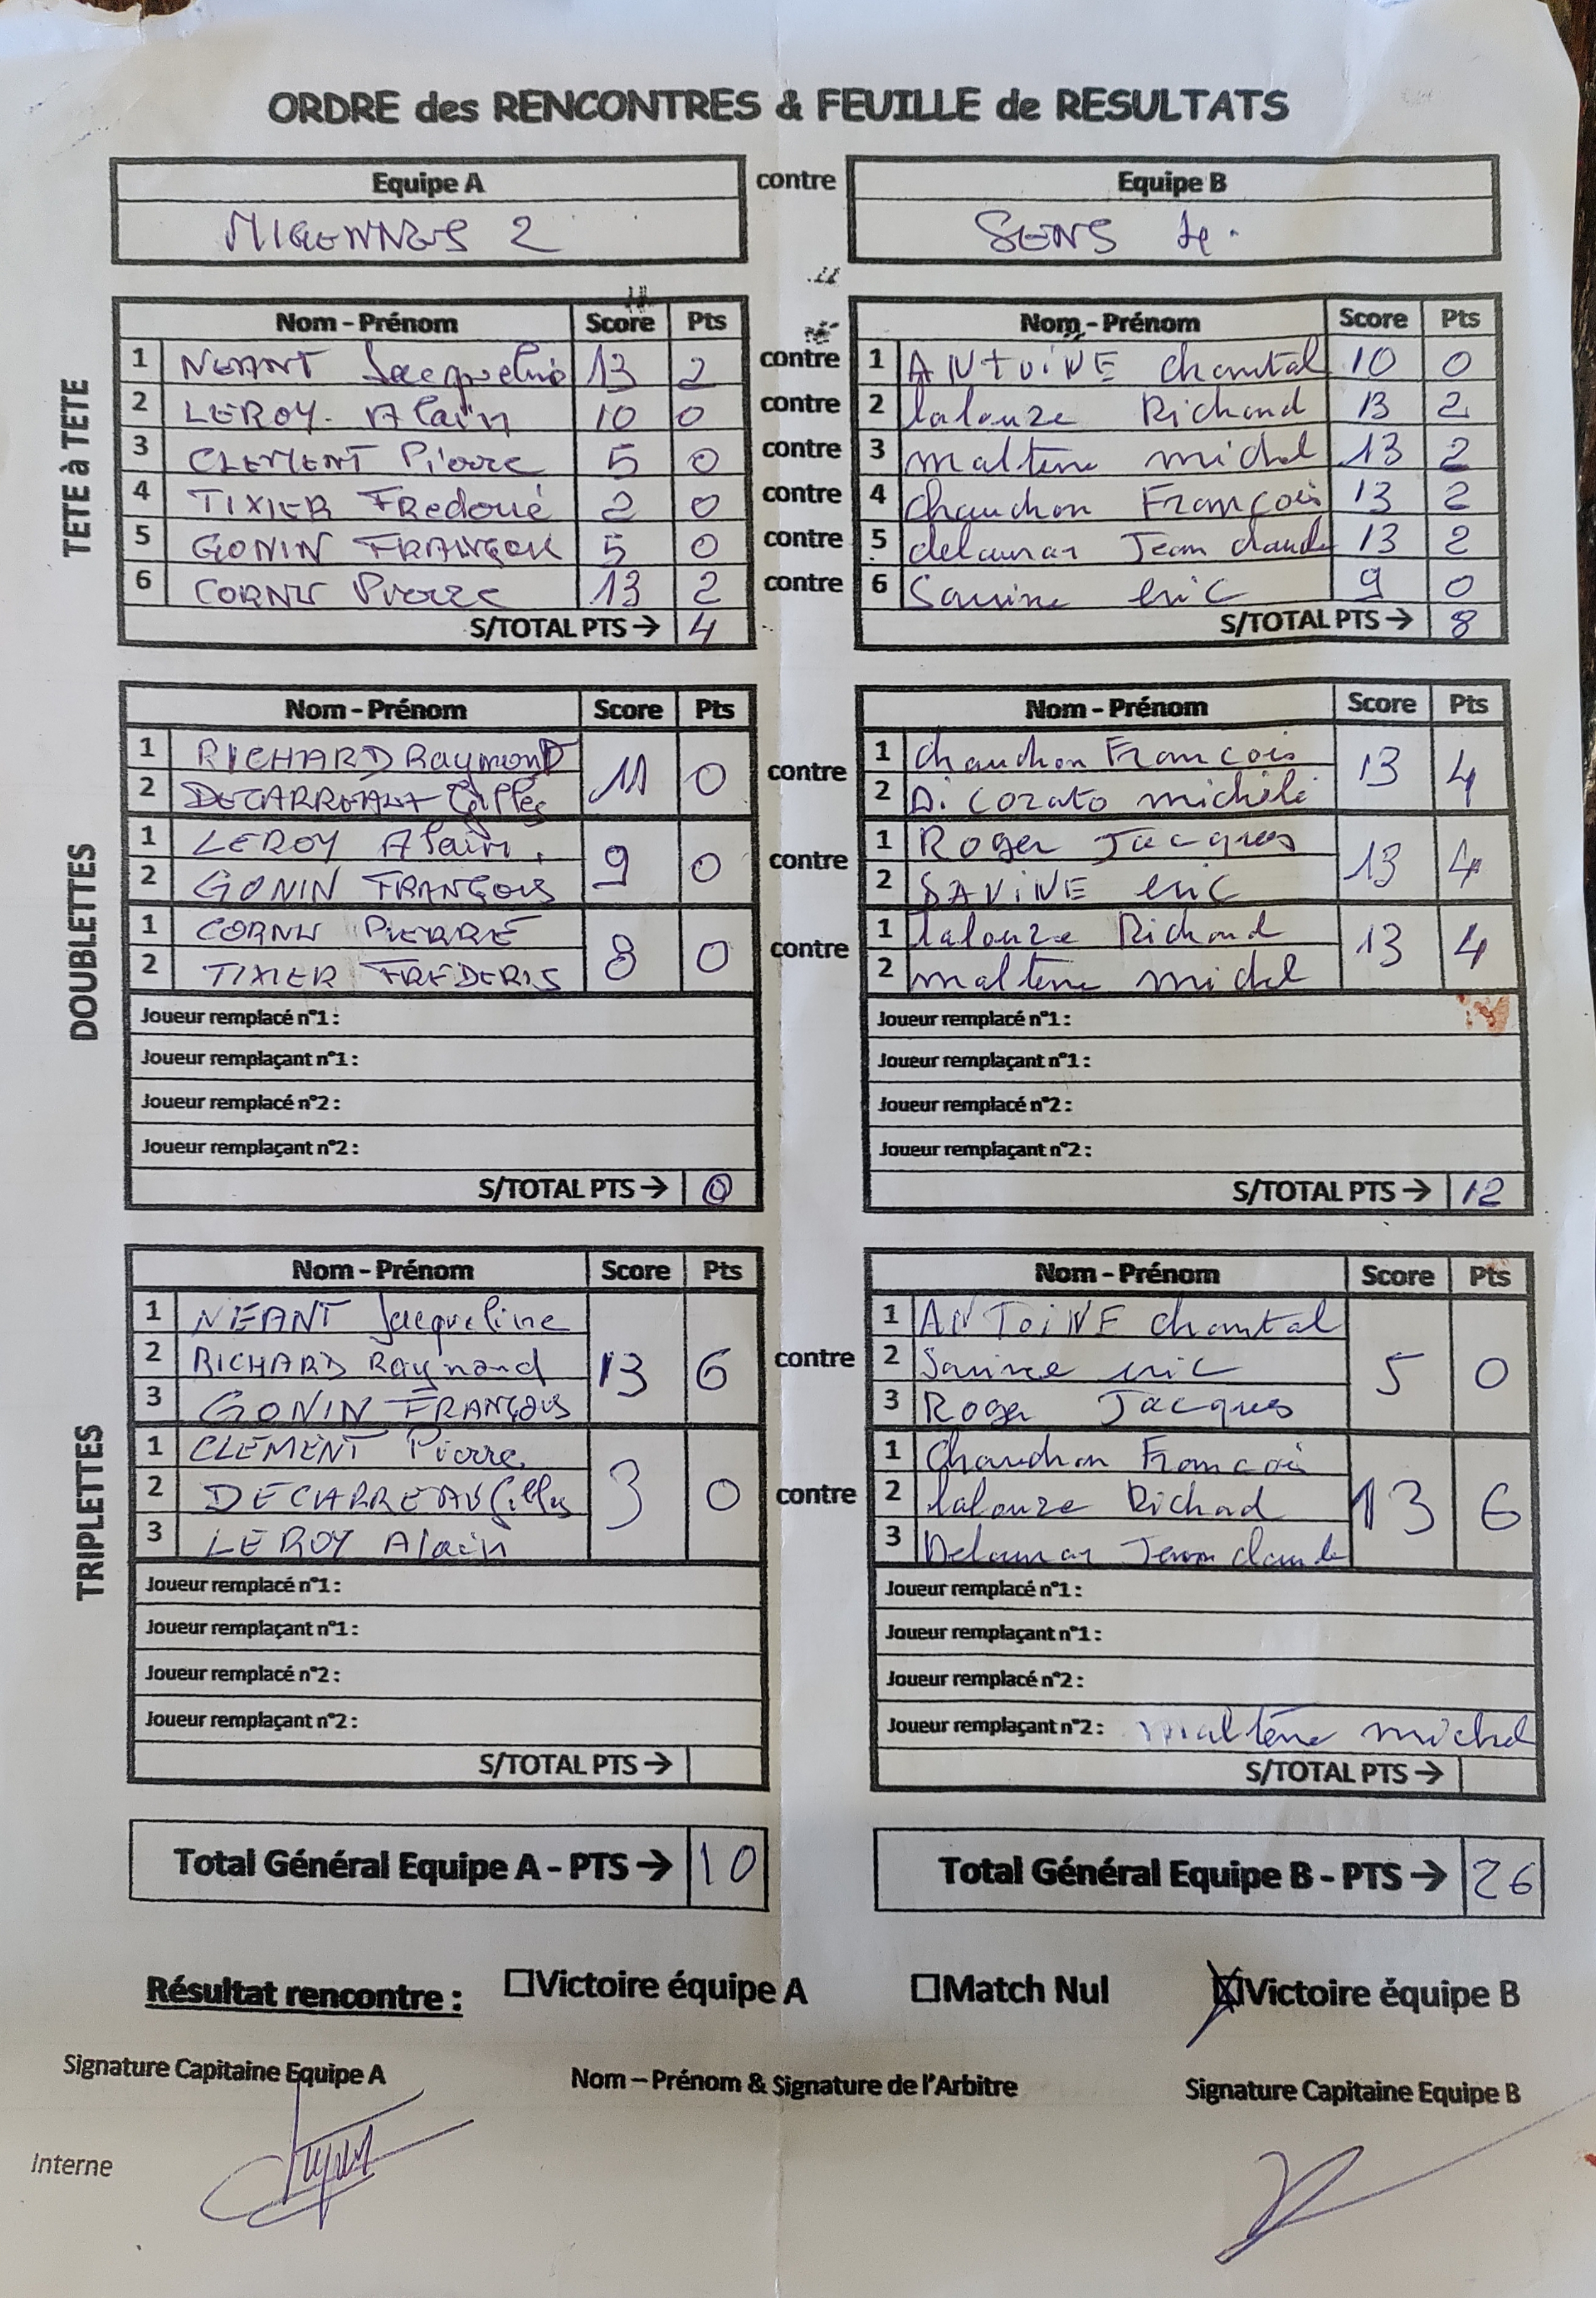 ORDRE des RENCONTRES & FEUILLE de RESULTATS
Equipe A contre Equipe B
MIGENNES 2 SENS 4.
TETE à TETE
Nom - Prénom Score Pts Nom - Prénom Score Pts
1 NEANT Jacqueline 13 2 contre 1 ANtoiNE chantal 10 0
2 LEROY. Alain 10 0 contre 2 lalauze Richard 13 2
3 CLEMENT Pierre 5 0 contre 3 maltene michel 13 2
4 TIXIER FRedoué 2 0 contre 4 chaudron François 13 2
5 GONIN FRANÇOIS 5 0 contre 5 delaunay Jean claude 13 2
6 CORNU Pierre 13 2 contre 6 Savine eric 9 0
S/TOTAL PTS → 4 S/TOTAL PTS → 8
DOUBLETTES
Nom - Prénom Score Pts Nom - Prénom Score Pts
1 RICHARD RaymonD 11 0 contre 1 chaudron Francois 13 4
2 DECARREAUX Gilles 2 Di Corato michele
1 LEROY Alain. 9 0 contre 1 Roger Jacques 13 4
2 GONIN FRANÇOIS 2 SAViNE eric
1 CORNU PIERRE 8 0 contre 1 lalauze Richard 13 4
2 TIXIER FREDERIS 2 maltene michel
Joueur remplacé n°1 : Joueur remplacé n°1 :
Joueur remplaçant n°1 : Joueur remplaçant n°1 :
Joueur remplacé n°2 : Joueur remplacé n°2 :
Joueur remplaçant n°2 : Joueur remplaçant n°2 :
S/TOTAL PTS → 0 S/TOTAL PTS → 12
TRIPLETTES
Nom - Prénom Score Pts Nom - Prénom Score Pts
1 NEANT Jacqueline 1 ANToiNE chantal
2 RICHARD Raymond 13 6 contre 2 Savine eric 5 0
3 GONIN FRANÇOIS 3 Roger Jacques
1 CLEMENT Pierre 1 Chaudron Francois
2 DECARREAUX Gilles 3 0 contre 2 lalauze Richad 13 6
3 LEROY Alain 3 Delaunay Jean claude
Joueur remplacé n°1 : Joueur remplacé n°1 :
Joueur remplaçant n°1 : Joueur remplaçant n°1 :
Joueur remplacé n°2 : Joueur remplacé n°2 :
Joueur remplaçant n°2 : Joueur remplaçant n°2 : maltène michel
S/TOTAL PTS → S/TOTAL PTS →
Total Général Equipe A - PTS → 10 Total Général Equipe B - PTS → 26
Résultat rencontre : ☐Victoire équipe A ☐Match Nul ☒Victoire équipe B
Signature Capitaine Equipe A Nom – Prénom & Signature de l'Arbitre Signature Capitaine Equipe B
Interne